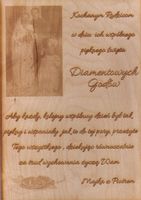 Kochanym Rodzicom
w dniu ich wspólnego
pięknego święta
Diamentowych
Godów
Aby każdy, kolejny wspólny dzień był tak
piękny i wspaniały jak te do tej pory przeżyte
Tego wszystkiego, dziękując równocześnie
za trud wychowania życzą Wam
Majka z Piotrem